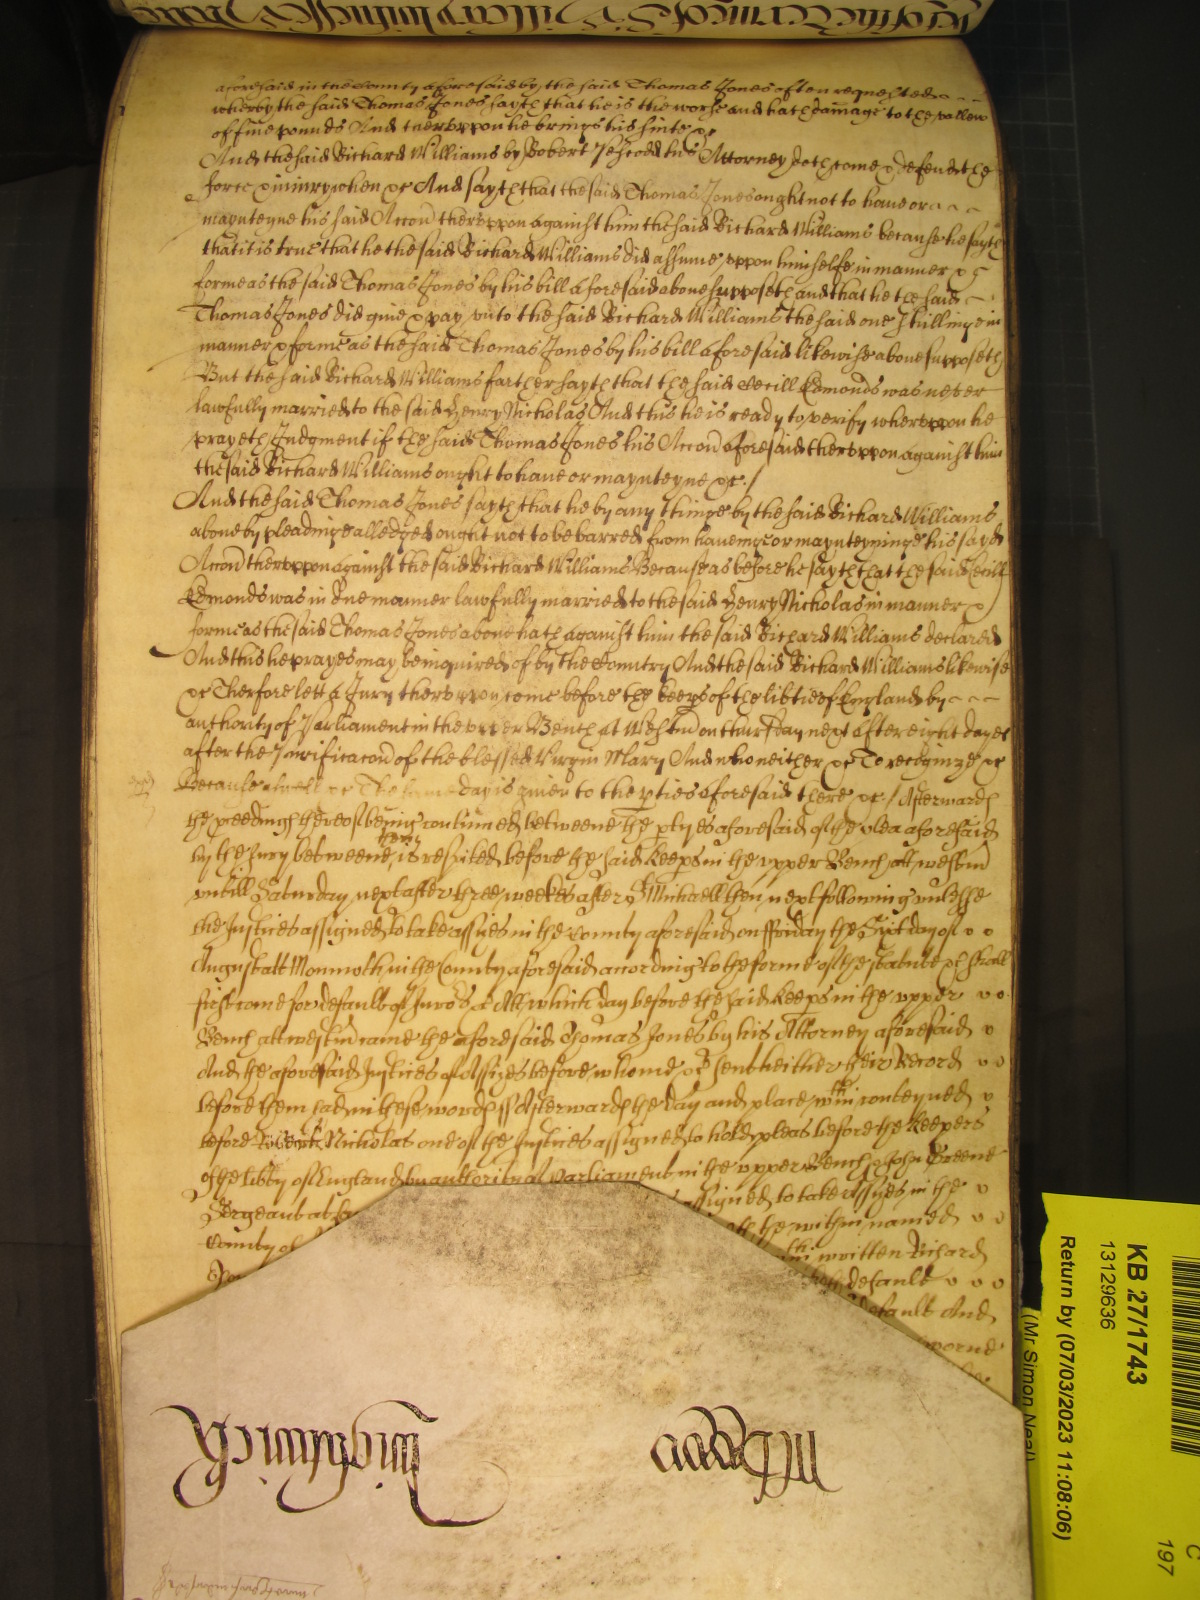 aforesaid in the County aforesaid by the said Thomas Jones often requested
wherby the said Thomas Jones sayth that he is the worse and hath damage to the vallew
of five pounds And therevppon he brings his suite &c
And the said Richard Williams by Robert his Attorney doth come & defend the
force & iniury when &c And sayth that the said Thomas Jones ought not to haue or
maynteyne his said Accon therevppon against him the said Richard Williams because he sayth
that it is true that he the said Richard Williams did assume vppon himselfe in manner &
forme as the said Thomas Jones by his bill aforesaid aboue supposeth and that he the said
Thomas Jones did giue & pay vnto the said Richard Williams the said one shillinge in
manner & forme as the said Thomas Jones by his bill aforesaid likewise aboue supposeth
But the said Richard Williams farther sayth that the said Cecill Edmonds was never
lawfully married to the said Henry Nicholas And this he is ready to verify wherevppon he
prayeth Judgment if the said Thomas Jones his Accon aforesaid therevppon against him
the said Richard Williams ought to haue or maynteyne &c./
And the said Thomas Jones sayth that he by any thinge by the said Richard Williams
aboue by pleadinge alledged ought not to be barred from haueinge or maynteyninge his sayd
Accon therevppon against the said Richard Williams Because as before he sayth that the said Cecill
Edmonds was in due manner lawfully married to the said Henry Nicholas in manner &
forme as the said Thomas Jones aboue hath against him the said Richard Williams declared
And this he prayes may be inquired of by the Country And the said Richard Williams likewise
&c Therfore lett a Jury therevppon come before the keeps of the libties of England by
authority of Parliament in the vpper Bench at Westmr on thursday next after eight dayes
after the Purificacon of the blessed Virgin Mary And who neither &c To recognize &c
Because aswell &c The same day is giuen to the pties aforesaid there &c./ Afterwards
the pceedings thereof being continued betweene the ptyes aforesaid of the plea aforesaid
by the Jury betweene them is respited before the said Keeps in the vpper Bench att westmr
vntill Saturday next after three weekes after St Michaell then next following vnlesse
the Justices assigned to take assizes in the County aforesaid on Friday the Sixt day of
August att Monmoth in the County aforesaid according to the forme of the statute &c shall
first come for default of Jurors &c Att which day before the said Keeps in the vpper
Bench att westmr came the aforesaid Thomas Jones by his Attorney aforesaid
And the aforesaid Justices of Assizes before whome &c sent heither their Record
before them had in these words ss Afterwards the day and place within conteyned
before Nicholas one of the Justices assigned to hold pleas before the Keepers
of the libty of England by authority of Parliament in the vpper Bench & John Greene
Sergeant at
assigned to take Assizes in the
County of
the within named
written Richard
default
default And
Middx
KB 27/1743
13129636
Return by (07/03/2023 11:08:06)
(Mr Simon Neal)
C
197